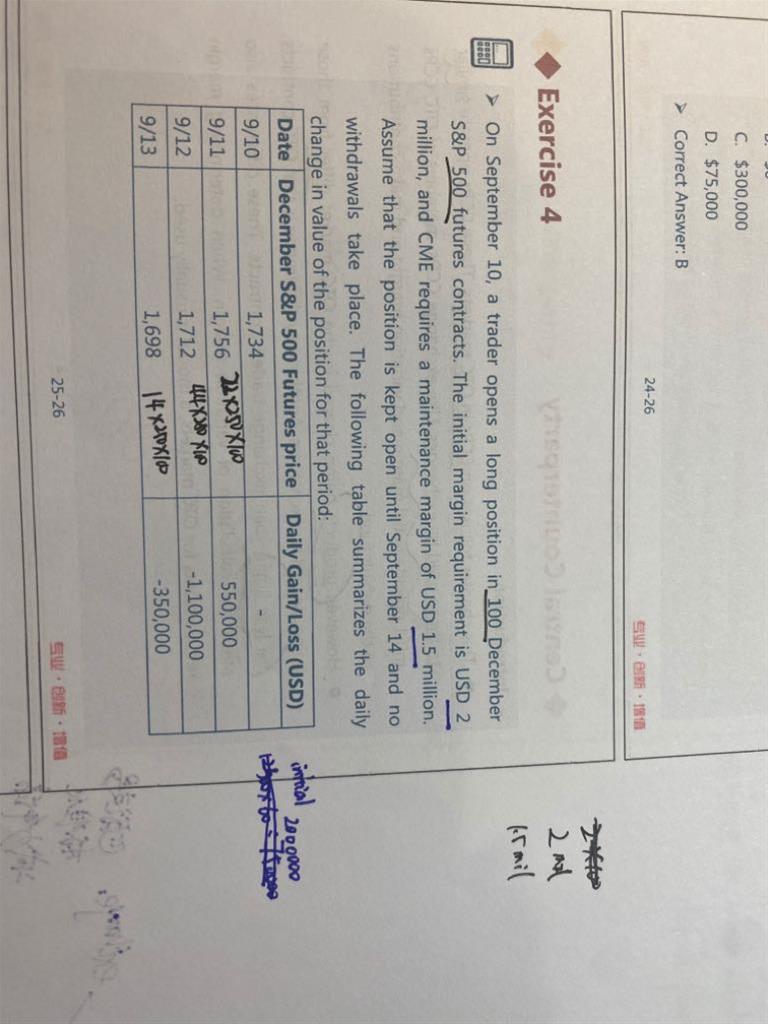 C. $300,000
D. $75,000
➢ Correct Answer: B
24-26
专业·创新·增值
◆ Exercise 4
➢ On September 10, a trader opens a long position in 100 December
S&P 500 futures contracts. The initial margin requirement is USD 2
million, and CME requires a maintenance margin of USD 1.5 million.
Assume that the position is kept open until September 14 and no
withdrawals take place. The following table summarizes the daily
change in value of the position for that period:
Date December S&P 500 Futures price Daily Gain/Loss (USD)
9/10 1,734 -
9/11 1,756 22×250×100 550,000
9/12 1,712 44×250×100 -1,100,000
9/13 1,698 14×250×100 -350,000
25-26
专业·创新·增值
2 mil
1.5 mil
initial 2000000